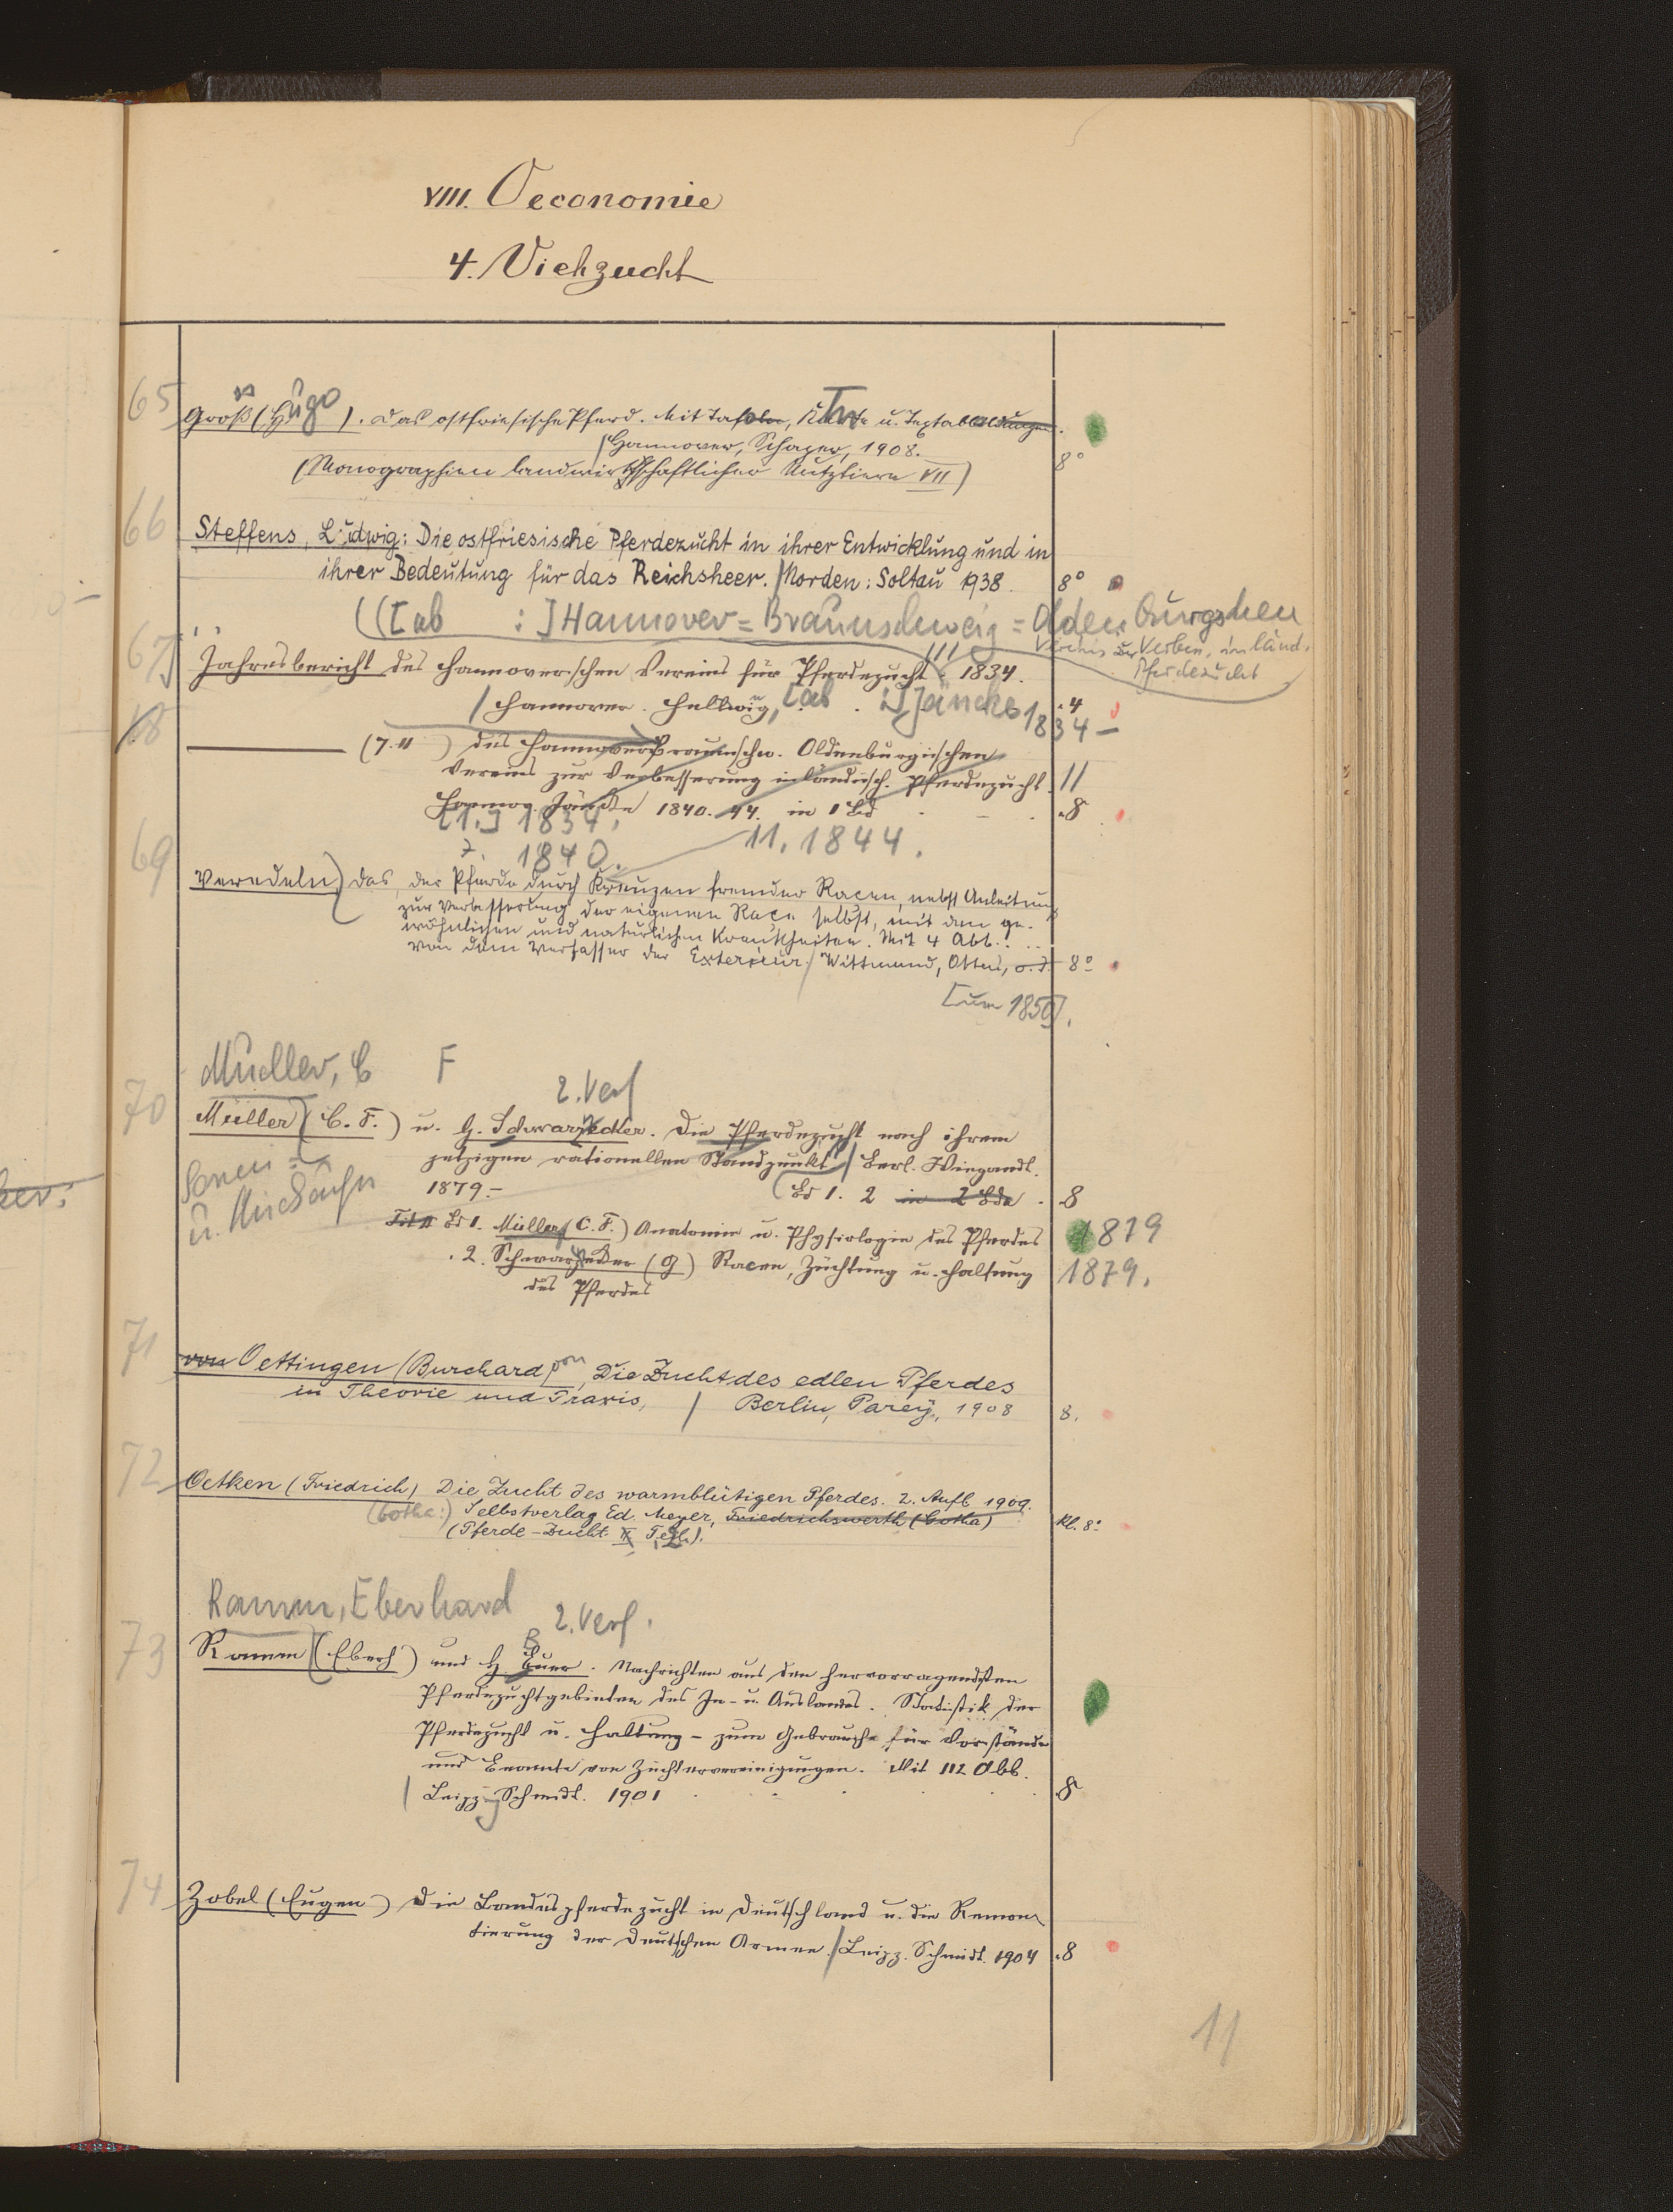 VIII. Oeconomie
4. Viehzucht
65
Groß (Hugo). Das ostfriesische Pferd. Mit Tafeln, Karte u. Textabbildungen.
/Hannover, Schaper, 1908.
(Monographien landwirtschaftlicher Nutztiere VII) 8°
66
Steffens, Ludwig: Die ostfriesische Pferdezucht in ihrer Entwicklung und in
ihrer Bedeutung für das Reichsheer. / Norden: Soltau 1938. 8°
(([ab :] Hannover=Braunschweig=Oldenburgschen
Vereins zur Verbess. inländ.
Pferdezucht
67
Jahresbericht des hannoverschen Vereins für Pferdezucht 1834.
/ Hannover. Hellwig, [ab :] Jäncke 1834 – .4
68
——— (7. 11 ) des Hannover Braunschw. Oldenburgischen
Vereins zur Verbesserung inländisch. Pferdezucht. 11
Hannov. Jänecke 1840. 44. in 1 Bd .8
[1.] 1834.
7. 1840. — 11. 1844.
69
Veredeln) das, der Pferde durch Kreuzen fremder Racen, nebst Anleitung
zur Verbesserung der eigenen Race selbst, mit den ge-
wöhnlichen und natürlichen Krankheiten. Mit 4 Abb.
Von dem Verfasser der Exterieur. / Wittmund, Ottens, o. J. 8°
[um 1850].
Mueller, C F
2. Verf
70
Müller (C. F.) u. G. Schwarznecker. Die Pferdezucht nach ihrem
jetzigen rationellen Standpunkt / Berl. Wiegandt.
1879.– (Bd 1. 2 in 2 Bde . 8
Bd 1. Müller (C. F.) Anatomie u. Physiologie des Pferdes 1879
. 2. Schwarznecker (G) Racen, Züchtung u. Haltung 1879.
des Pferdes
71
von Oettingen (Burchard von, Die Zucht des edlen Pferdes
in Theorie und Praxis, / Berlin, Parey, 1908 8.
72
Oetken (Friedrich) Die Zucht des warmblütigen Pferdes. 2. Aufl 1909.
(Gotha:) Selbstverlag Ed. Meyer, Friedrichswerth (Gotha) kl. 8°
(Pferde-Zucht II Teil).
Ramm, Eberhard
2. Verf.
73
Ramm (Eberh) und H. Buer. Nachrichten aus den hervorragendsten
Pferdezuchtgebieten des In- u. Auslandes. Statistik der
Pferdezucht u. Haltung – zum Gebrauche für Vorstände
und Beamte von Züchtervereinigungen. Mit 112 Abb.
/ Leipzig Schmidt. 1901 .8
74
Zobel (Eugen) Die Landespferdezucht in Deutschland u. die Remon
tierung der deutschen Armee. / Leipz. Schmidt. 1904 .8
11